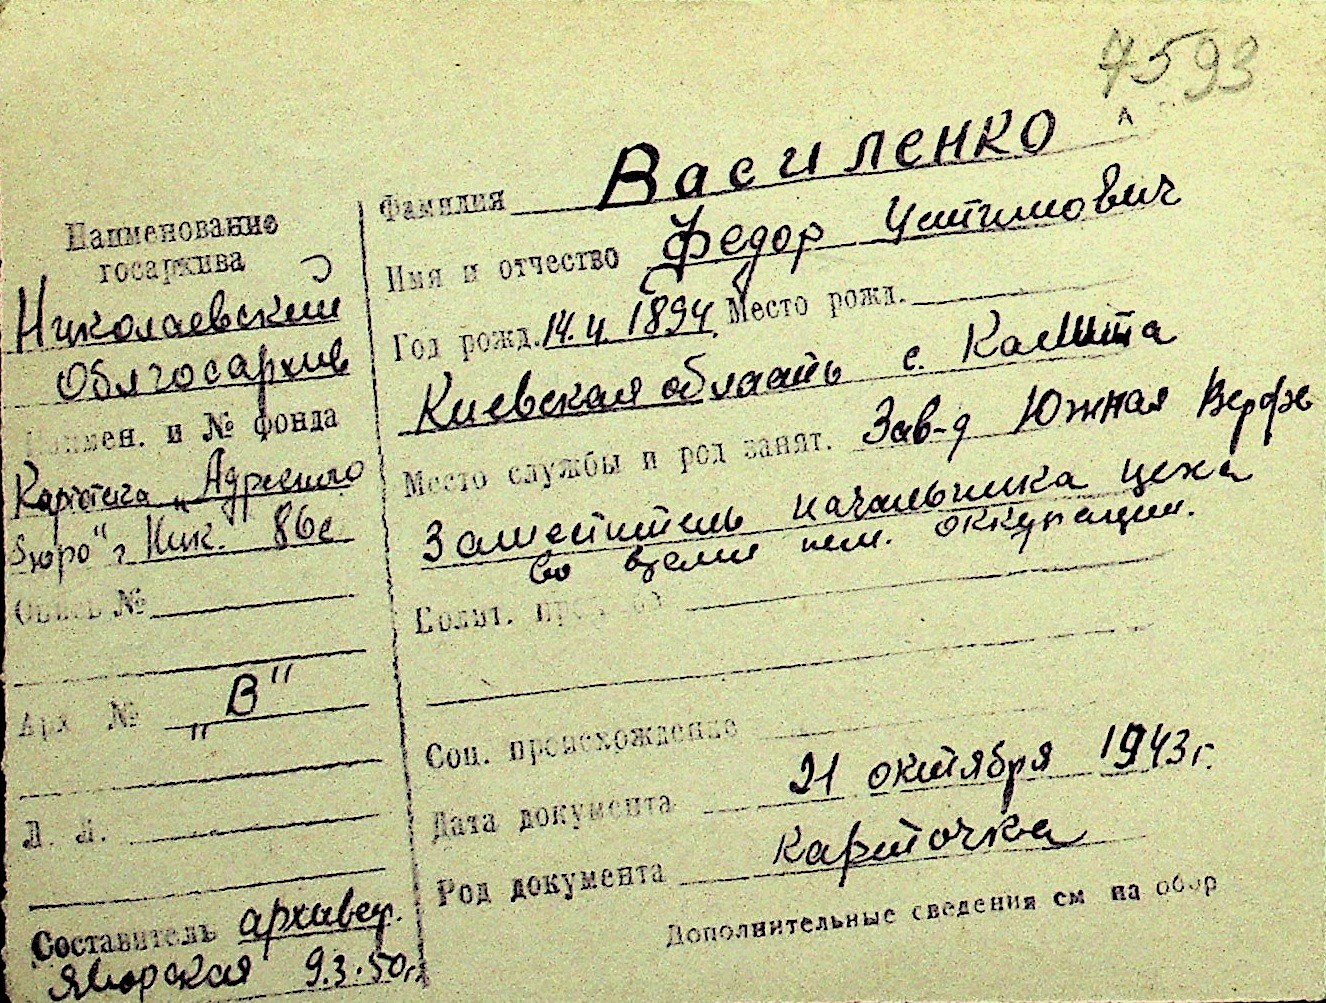 4593
Наименование
госархива
Николаевский
Облгосархив
Наимен. и № фонда
Картотека „Адресного
бюро" г. Ник. 86с
Опись №
Арх №
„В"
Л. Л.
Составитель архивер.
Яворская 9.3.50г.
Фамилия Василенко
Имя и отчество Федор Устимович
Год рожд. 1894 Место рожд.
Киевская область с. Калита
Место службы и род занят. Зав-д Южная Верфь
Заместитель начальника цеха
во время нем. оккупации.
Полит.
Соц. происхождение
Дата документа 21 октября 1943 г.
Род документа карточка
Дополнительные сведения см на обор